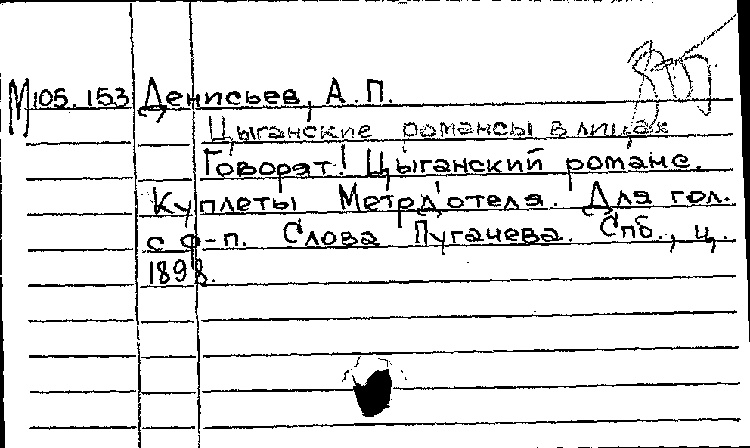 М105.153 Денисьев, А.П.
Цыганские романсы в лицах
Говорят! Цыганский романс.
Куплеты Метрд'отеля. Для гол.
с ф-п. Слова Пугачева. Спб., ц.
1898.